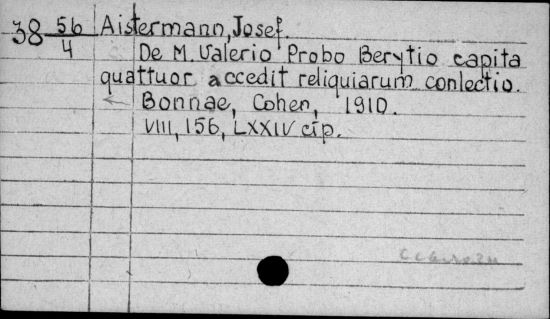 38 56/4 Aistermann, Josef.
De M. Valerio Probo Berytio capita
quattuor accedit reliquiarum conlectio.
Bonnae, Cohen, 1910.
VIII, 156, LXXIV cip.